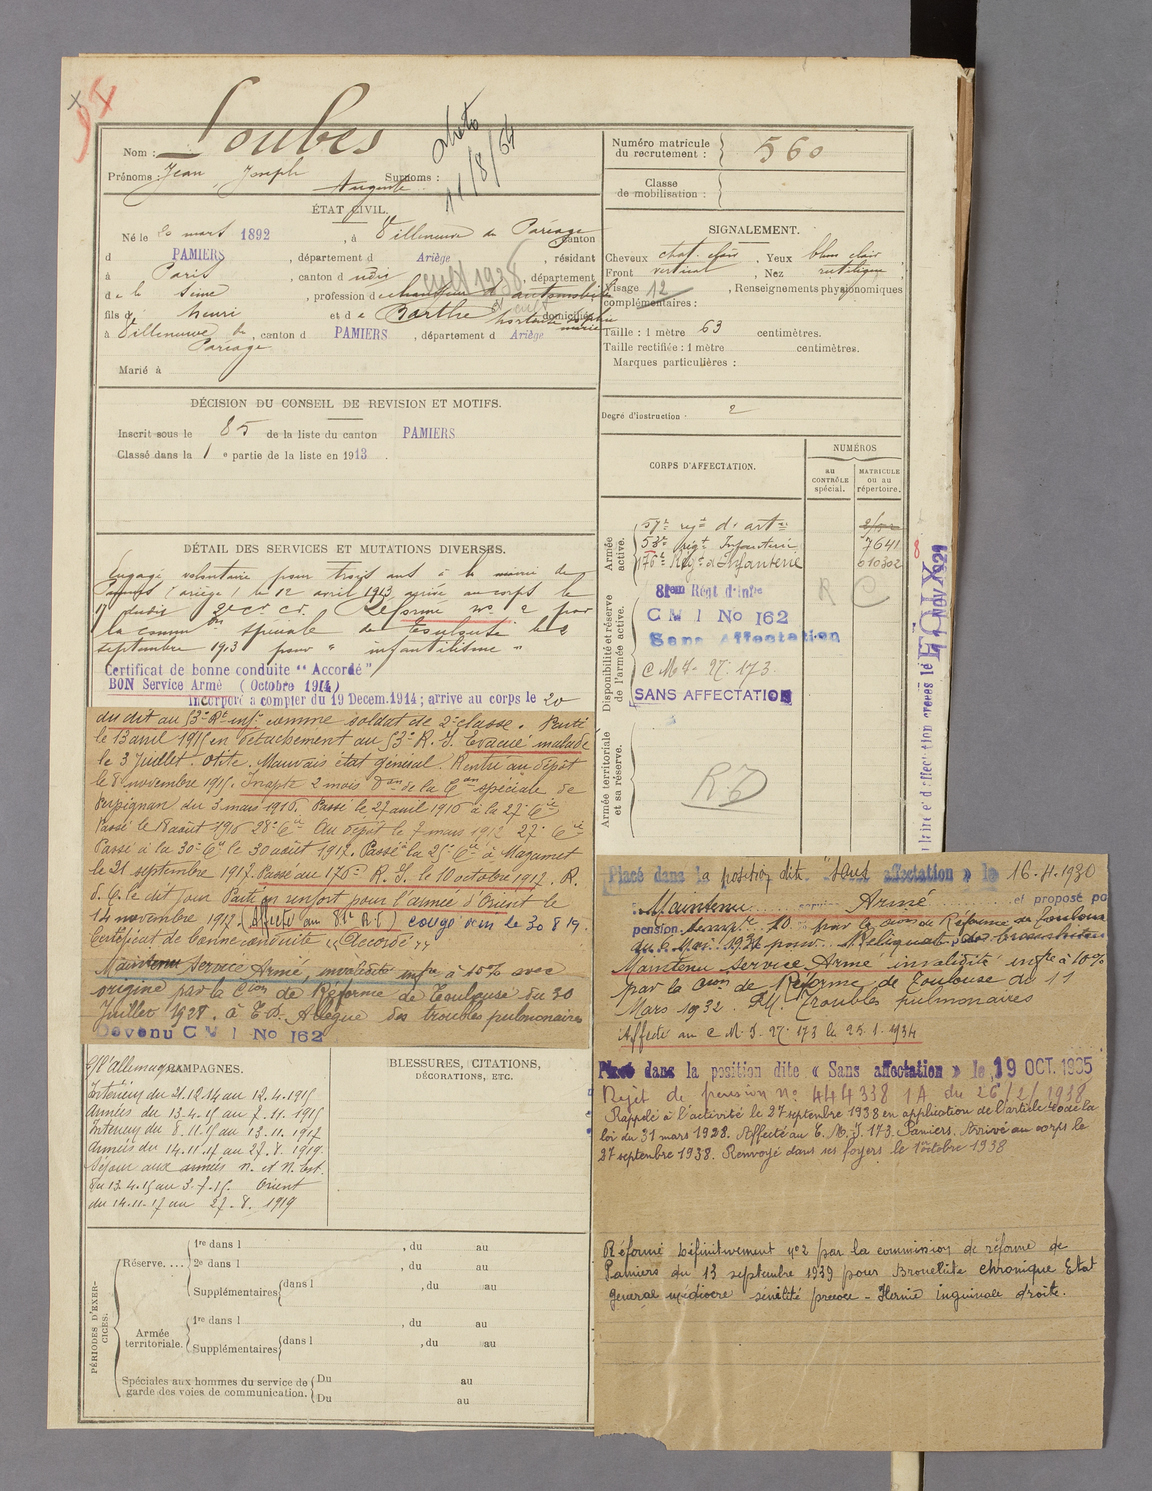 Nom : Loubes
Prénoms : Jean Joseph Surnoms :
Auguste
11/8/54
ÉTAT CIVIL.
Né le 20 mars 1892, à Villeneuve du Paréage canton
d PAMIERS, département d Ariège, résidant
à Paris, canton d, département
de la Seine, profession de chauffeur d'automobile
fils d' henri et d e Barthe hortense Sophie marie domiciliés
à Villeneuve du Paréage, canton d PAMIERS, département d Ariège
Marié à
DÉCISION DU CONSEIL DE REVISION ET MOTIFS.
Inscrit sous le 85 de la liste du canton PAMIERS
Classé dans la 1e partie de la liste en 1913.
DÉTAIL DES SERVICES ET MUTATIONS DIVERSES.
Engagé volontaire pour trois ans à la mairie de
Pamiers (ariège) le 12 avril 1913, arrivé au corps le
17 dudit 2e Cr Ct. Réformé no 2 par
la common spéciale de Toulouse le 2
septembre 1913 pour " infantilisme "
Certificat de bonne conduite "Accordé"
BON Service Armé (Octobre 1914)
Incorporé à compter du 19 Decem.1914; arrivé au corps le 20
du dit au 53e Rt infie comme soldat de 2e classe.
le 13 avril 1915 en détachement au 53e R. I. Evacué malade
le 3 Juillet. Otite. Mauvais état général. Rentré au dépôt
le 8 novembre 1915. Inapte 2 mois Don de la Con spéciale de
Perpignan du 3 mars 1916. Passé le 27 avril 1916 à la 27e Cie
Passé le 18 août 1916 28e Cie Au dépôt le 7 mars 1917 27e Cie
Passé à la 30e Cie le 30 août 1917. Passé à la 25e Cie à Mazamet
le 21 septembre 1917. Passé au 176e R. I. le 10 octobre 1917. R.
d. C. le dit jour Parti en renfort pour l'armée d'Orient le
14 novembre 1917. (Affecté au 81e R.I) congé dém le 30 8 19.
Certificat de bonne conduite "Accordé"
Maintenu Service Armé, invalidité infre à 10% avec
origine par la Cion de Réforme de Toulouse du 30
Juillet 1928. à T.D. Allègue des troubles pulmonaires
Devenu C M I No 162
CAMPAGNES.
c/ l'allemagne
Intérieur du 21.12.14 au 12.4.1915
Armées du 13.4.15 au 7.11.1915
Intérieur du 8.11.15 au 13.11.1917
Armées du 14.11.17 au 27.8.1919
Séjour aux armées n. et N. Est.
du 13.4.15 au 3.7.15. Orient
du 14.11.17 au 27.8.1919
BLESSURES, CITATIONS,
DÉCORATIONS, ETC.
PÉRIODES D'EXERCICES.
Réserve....
1re dans l, du au
2e dans l, du au
Supplémentaires dans l, du au
Armée territoriale.
1re dans l, du au
Supplémentaires dans l, du au
Spéciales aux hommes du service de garde des voies de communication.
Du au
Du au
Numéro matricule du recrutement : 560
Classe de mobilisation :
SIGNALEMENT.
Cheveux chat. clair. Yeux bleu clair
Front vertical, Nez rectiligne
Visage 12, Renseignements physionomiques
complémentaires :
Taille : 1 mètre 63 centimètres.
Taille rectifiée : 1 mètre centimètres.
Marques particulières :
Degré d'instruction 2
CORPS D'AFFECTATION.
NUMÉROS
au CONTRÔLE spécial.
MATRICULE ou au répertoire.
Armée active.
57e regt d'artie
53e Régt Infanterie 7641
176e Régt d'Infanterie 010302
Disponibilité et réserve de l'armée active.
81em Régt d'Infie
C M I No 162
Sans Affectation
C M I. 27. 173
SANS AFFECTATION
R C
Armée territoriale et sa réserve.
R.D
FOIX
NOV 1929
Placé dans la position dite "Sans affectation" le 16.4.1930
Maintenu service Armé et proposé po
pension temp. 10 % par la Cion de Réforme de Toulouse
Maintenu service Armé invalidité infre à 10%
par la Cion de Réforme de Toulouse du 11
Mars 1932. P.M. Troubles pulmonaires
Affecté au C M I. 27. 173 le 25.1.1934
Placé dans la position dite « Sans affectation » le 19 OCT. 1935
Rejet de pension no 444338 1A du 26/2/1938
Rappelé à l'activité le 27 septembre 1938 en application de l'article 40 de la
loi du 31 mars 1928. Affecté au C. M. I. 173. Pamiers. Arrivé au corps le
27 septembre 1938. Renvoyé dans ses foyers le 1er octobre 1938
Réformé définitivement no2 par la commission de réforme de
Pamiers du 13 septembre 1939 pour Bronchite chronique Etat
général médiocre sénilité précoce - Hernie inguinale droite.